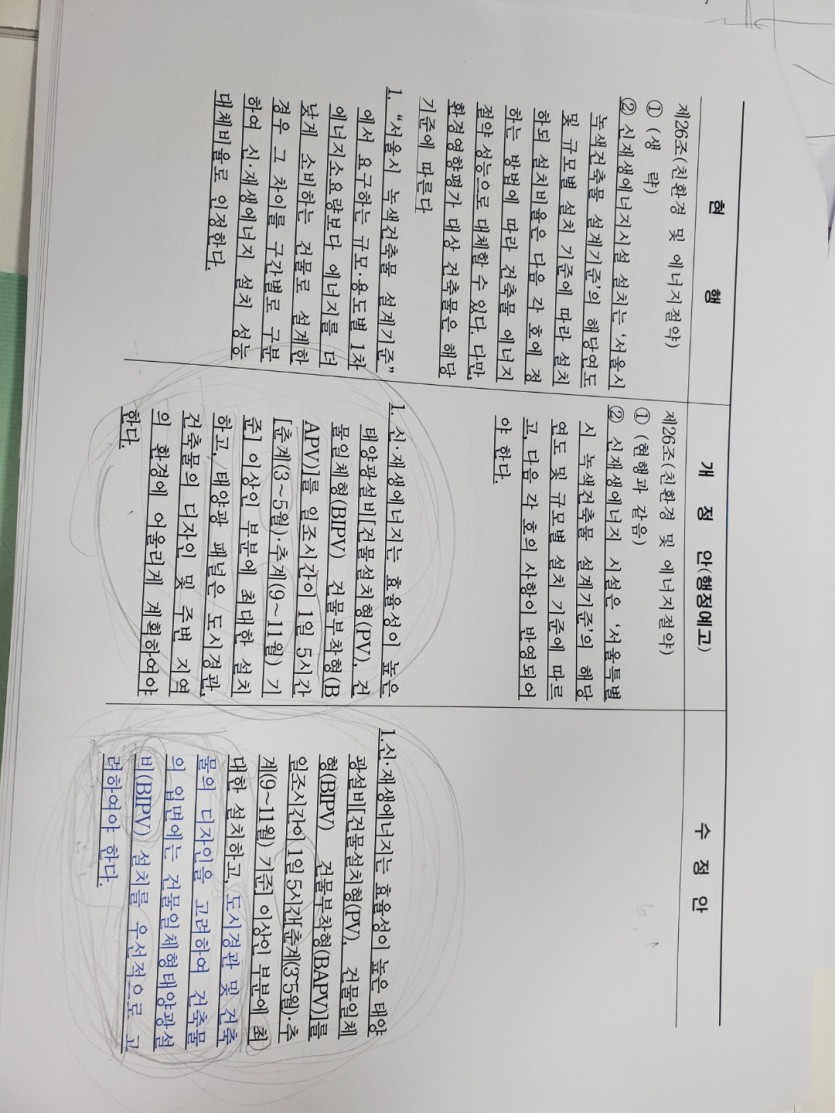 현 행
제26조(친환경 및 에너지절약)
① (생 략)
② 신재생에너지시설 설치는 ‘서울시
녹색건축물 설계기준’의 해당연도
및 규모별 설치 기준에 따라 설치
하되 설치비율은 다음 각 호에 정
하는 방법에 따라 건축물 에너지
절약 성능으로 대체할 수 있다. 다만,
환경영향평가 대상 건축물은 해당
기준에 따른다
1. “서울시 녹색건축물 설계기준”
에서 요구하는 규모·용도별 1차
에너지소요량보다 에너지를 더
낮게 소비하는 건물로 설계한
경우 그 차이를 구간별로 구분
하여 신·재생에너지 설치 성능
대체비율로 인정한다.
개 정 안(행정예고)
제26조(친환경 및 에너지절약)
① (현행과 같음)
② 신재생에너지 시설은 ‘서울특별
시 녹색건축물 설계기준’의 해당
연도 및 규모별 설치 기준에 따르
고, 다음 각 호의 사항이 반영되어
야 한다.
1. 신·재생에너지는 효율성이 높은
태양광설비[건물설치형(PV), 건
물일체형(BIPV) 건물부착형(B
APV)]를 일조시간이 1일 5시간
[춘계(3~5월)·추계(9~11월) 기
준] 이상인 부분에 최대한 설치
하고, 태양광 패널은 도시경관,
건축물의 디자인 및 주변 지역
의 환경에 어울리게 계획하여야
한다.
수 정 안
1.신·재생에너지는 효율성이 높은 태양
광설비[건물설치형(PV), 건물일체
형(BIPV) 건물부착형(BAPV)]를
일조시간이 1일 5시간[춘계(3~5월)·추
계(9~11월) 기준] 이상인 부분에 최
대한 설치하고, 도시경관 및 건축
물의 디자인을 고려하여 건축물
의 입면에는 건물일체형태양광설
비(BIPV) 설치를 우선적으로 고
려하여야 한다.